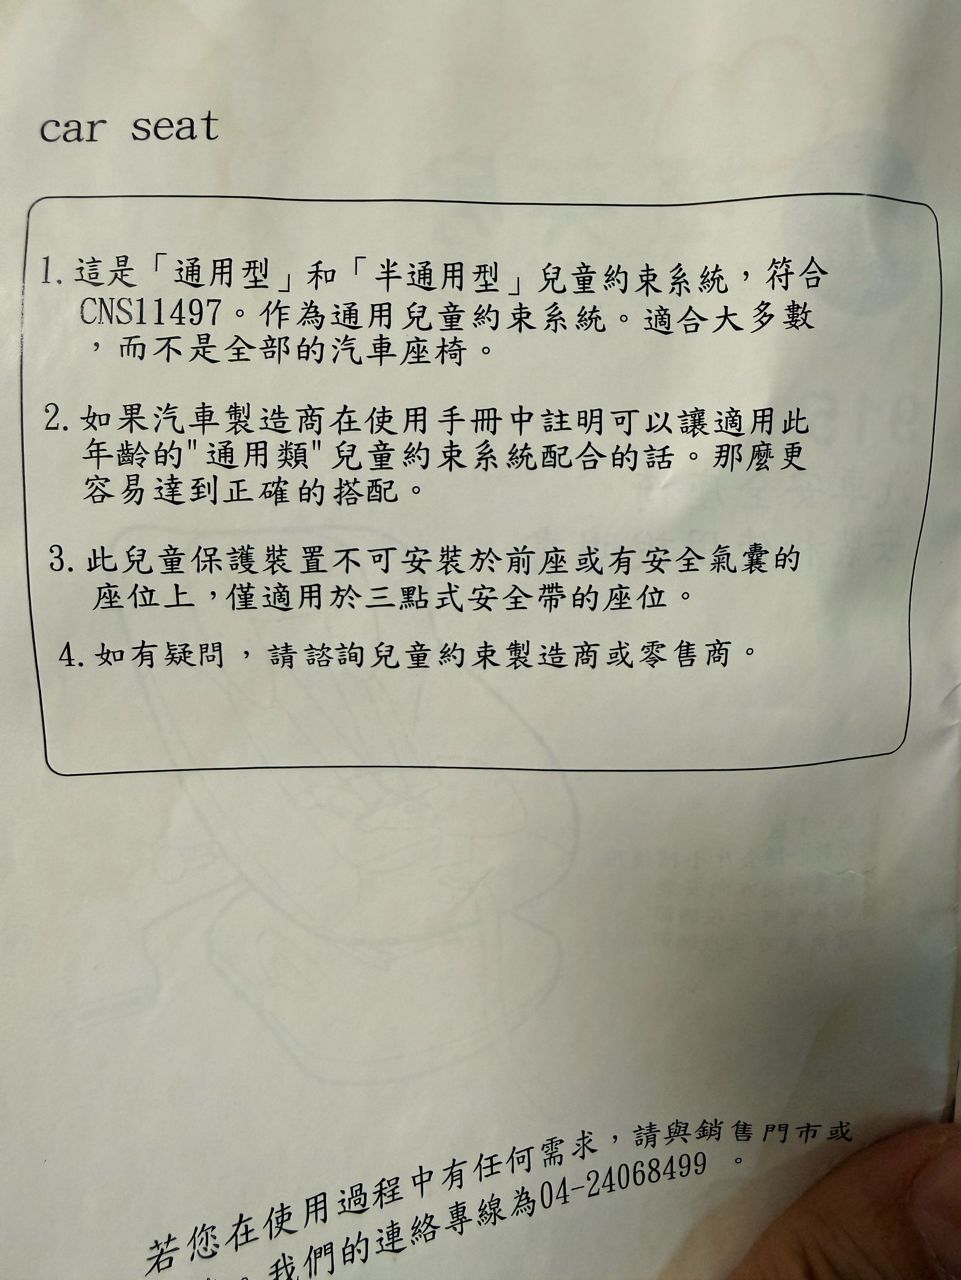 car seat
1. 這是「通用型」和「半通用型」兒童約束系統，符合
CNS11497。作為通用兒童約束系統。適合大多數
，而不是全部的汽車座椅。
2. 如果汽車製造商在使用手冊中註明可以讓適用此
年齡的"通用類"兒童約束系統配合的話。那麼更
容易達到正確的搭配。
3. 此兒童保護裝置不可安裝於前座或有安全氣囊的
座位上，僅適用於三點式安全帶的座位。
4. 如有疑問，請諮詢兒童約束製造商或零售商。
若您在使用過程中有任何需求，請與銷售門市或
。我們的連絡專線為04-24068499 。